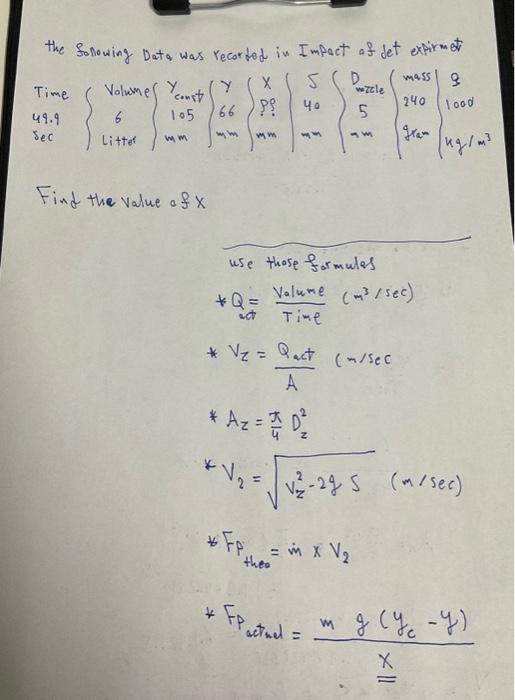 the following Data was recorded in Impact of Jet expirmet
Time Volume Yconst Y X S Dnozzle mass ρ
49.9 6 105 66 ?? 40 5 240 1000
Sec Litter mm mm mm mm mm gram kg/m³
Find the value of X
use those formulas
* Qact = Volume / Time (m³/sec)
* Vz = Qact / A (m/sec
* Az = π/4 Dz²
* V2 = √(Vz² - 2g S) (m/sec)
* Fptheo = ṁ x V2
* Fpactuel = m g (yc - y) / X